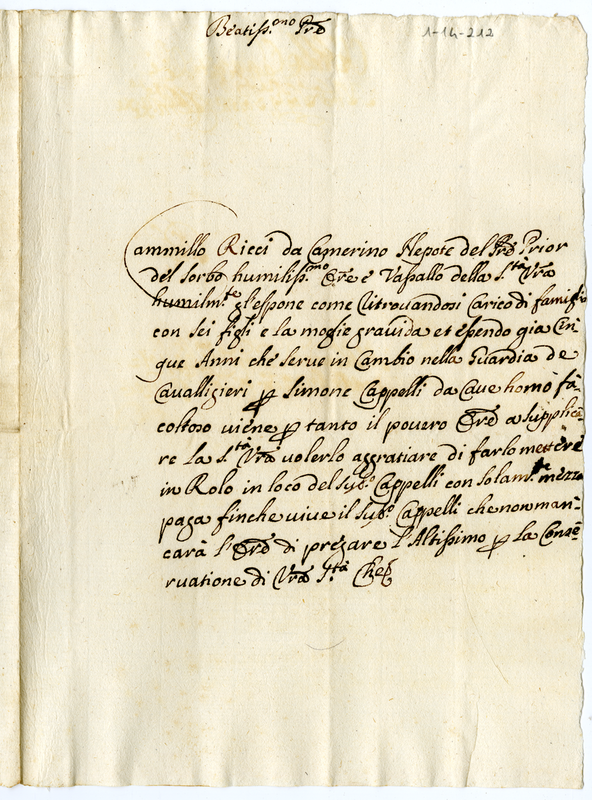 Beatiss.mo Pre
1-14-212
Cammillo Ricci da Camerino Nepote del Pre Prior
del Sorbo humiliss.mo Ore e Vassallo della S.tà Vra
humilm.te gl'espone come ritrouandosi Carico di famiglia
con sei figli e la moglie grauida et essendo gia Cin
que Anni che serue in Cambio nella Guardia de
Caualligieri p Simone Cappelli da Caue homo fa-
coltoso uiene p tanto il pouero Ore a supplica-
re la S.tà Vra uolerlo aggratiare di farlo mettere
in Rolo in loco del sud.o Cappelli con solam.te mezza
paga finche uiue il sud.o Cappelli che non man-
carà l'Ore di pregare l'Altissimo p la Conse
ruatione di Vra S.tà Che